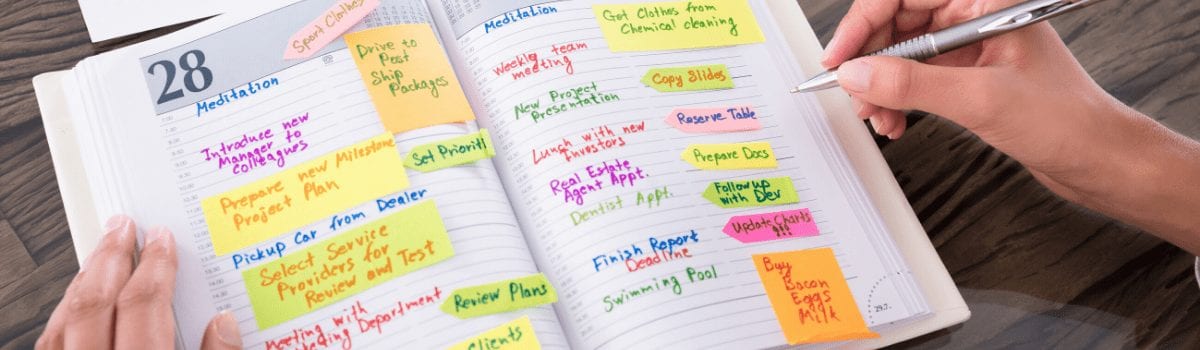 28
Sport Clothes
Drive to
Post
Ship
Packages
Meditation
Introduce new
Manager to
colleagues
Set Prioriti
Prepare new Milestone
Project Plan
Pickup Car from Dealer
Select Service
Providers for
Review and Test
Review Plans
Meeting with
Department
Clients
Meditation
Get Clothes from
Chemical cleaning
Weekly team
meeting
Copy Slides
New Project
Presentation
Reserve Table
Lunch with new
Investors
Prepare Docs
Real Estate
Agent Appt.
Follow up
with Dev
Dentist Appt.
Update Charts
!!!
Finish Report
Deadline
Buy
Bacon
Eggs
Milk
Swimming Pool